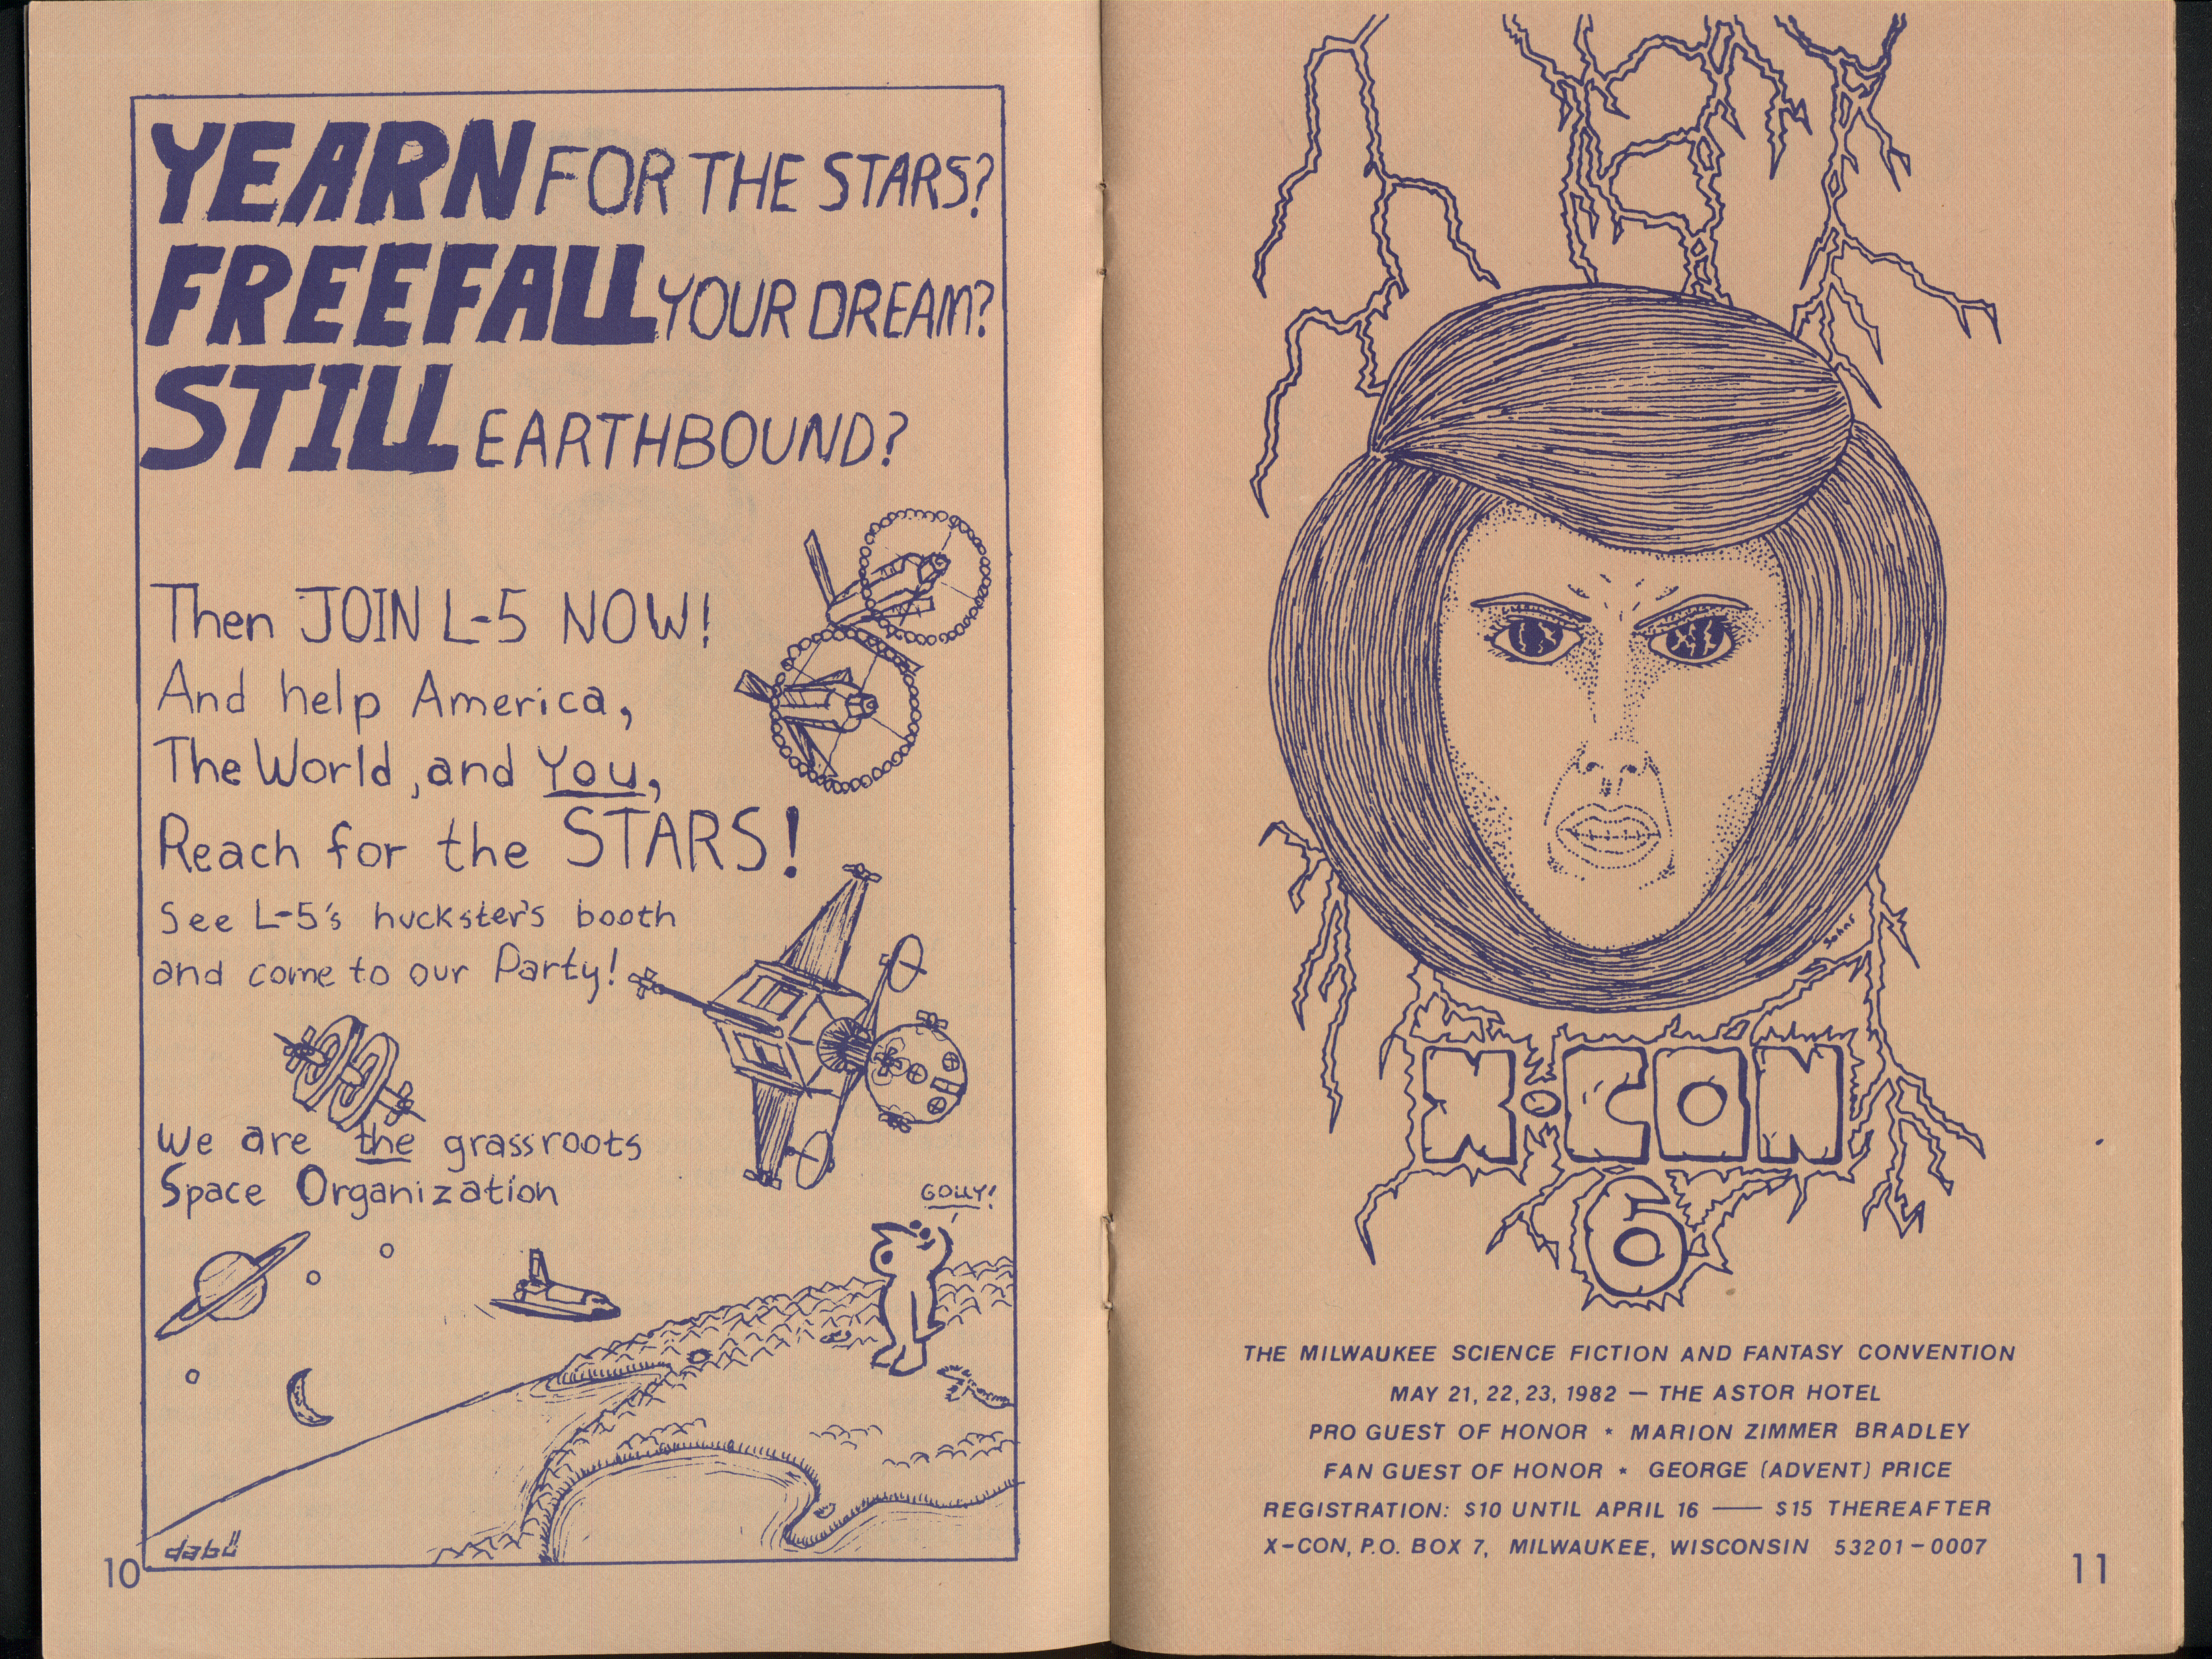 YEARN FOR THE STARS?
FREEFALL YOUR DREAM?
STILL EARTHBOUND?
Then JOIN L-5 NOW!
And help America,
The World, and You,
Reach for the STARS!
See L-5's huckster's booth
and come to our Party!
We are the grassroots
Space Organization
GOLLY!
dabü
10
X·CON
6
THE MILWAUKEE SCIENCE FICTION AND FANTASY CONVENTION
MAY 21, 22, 23, 1982 — THE ASTOR HOTEL
PRO GUEST OF HONOR * MARION ZIMMER BRADLEY
FAN GUEST OF HONOR * GEORGE (ADVENT) PRICE
REGISTRATION: $10 UNTIL APRIL 16 — $15 THEREAFTER
X-CON, P.O. BOX 7, MILWAUKEE, WISCONSIN 53201-0007
11